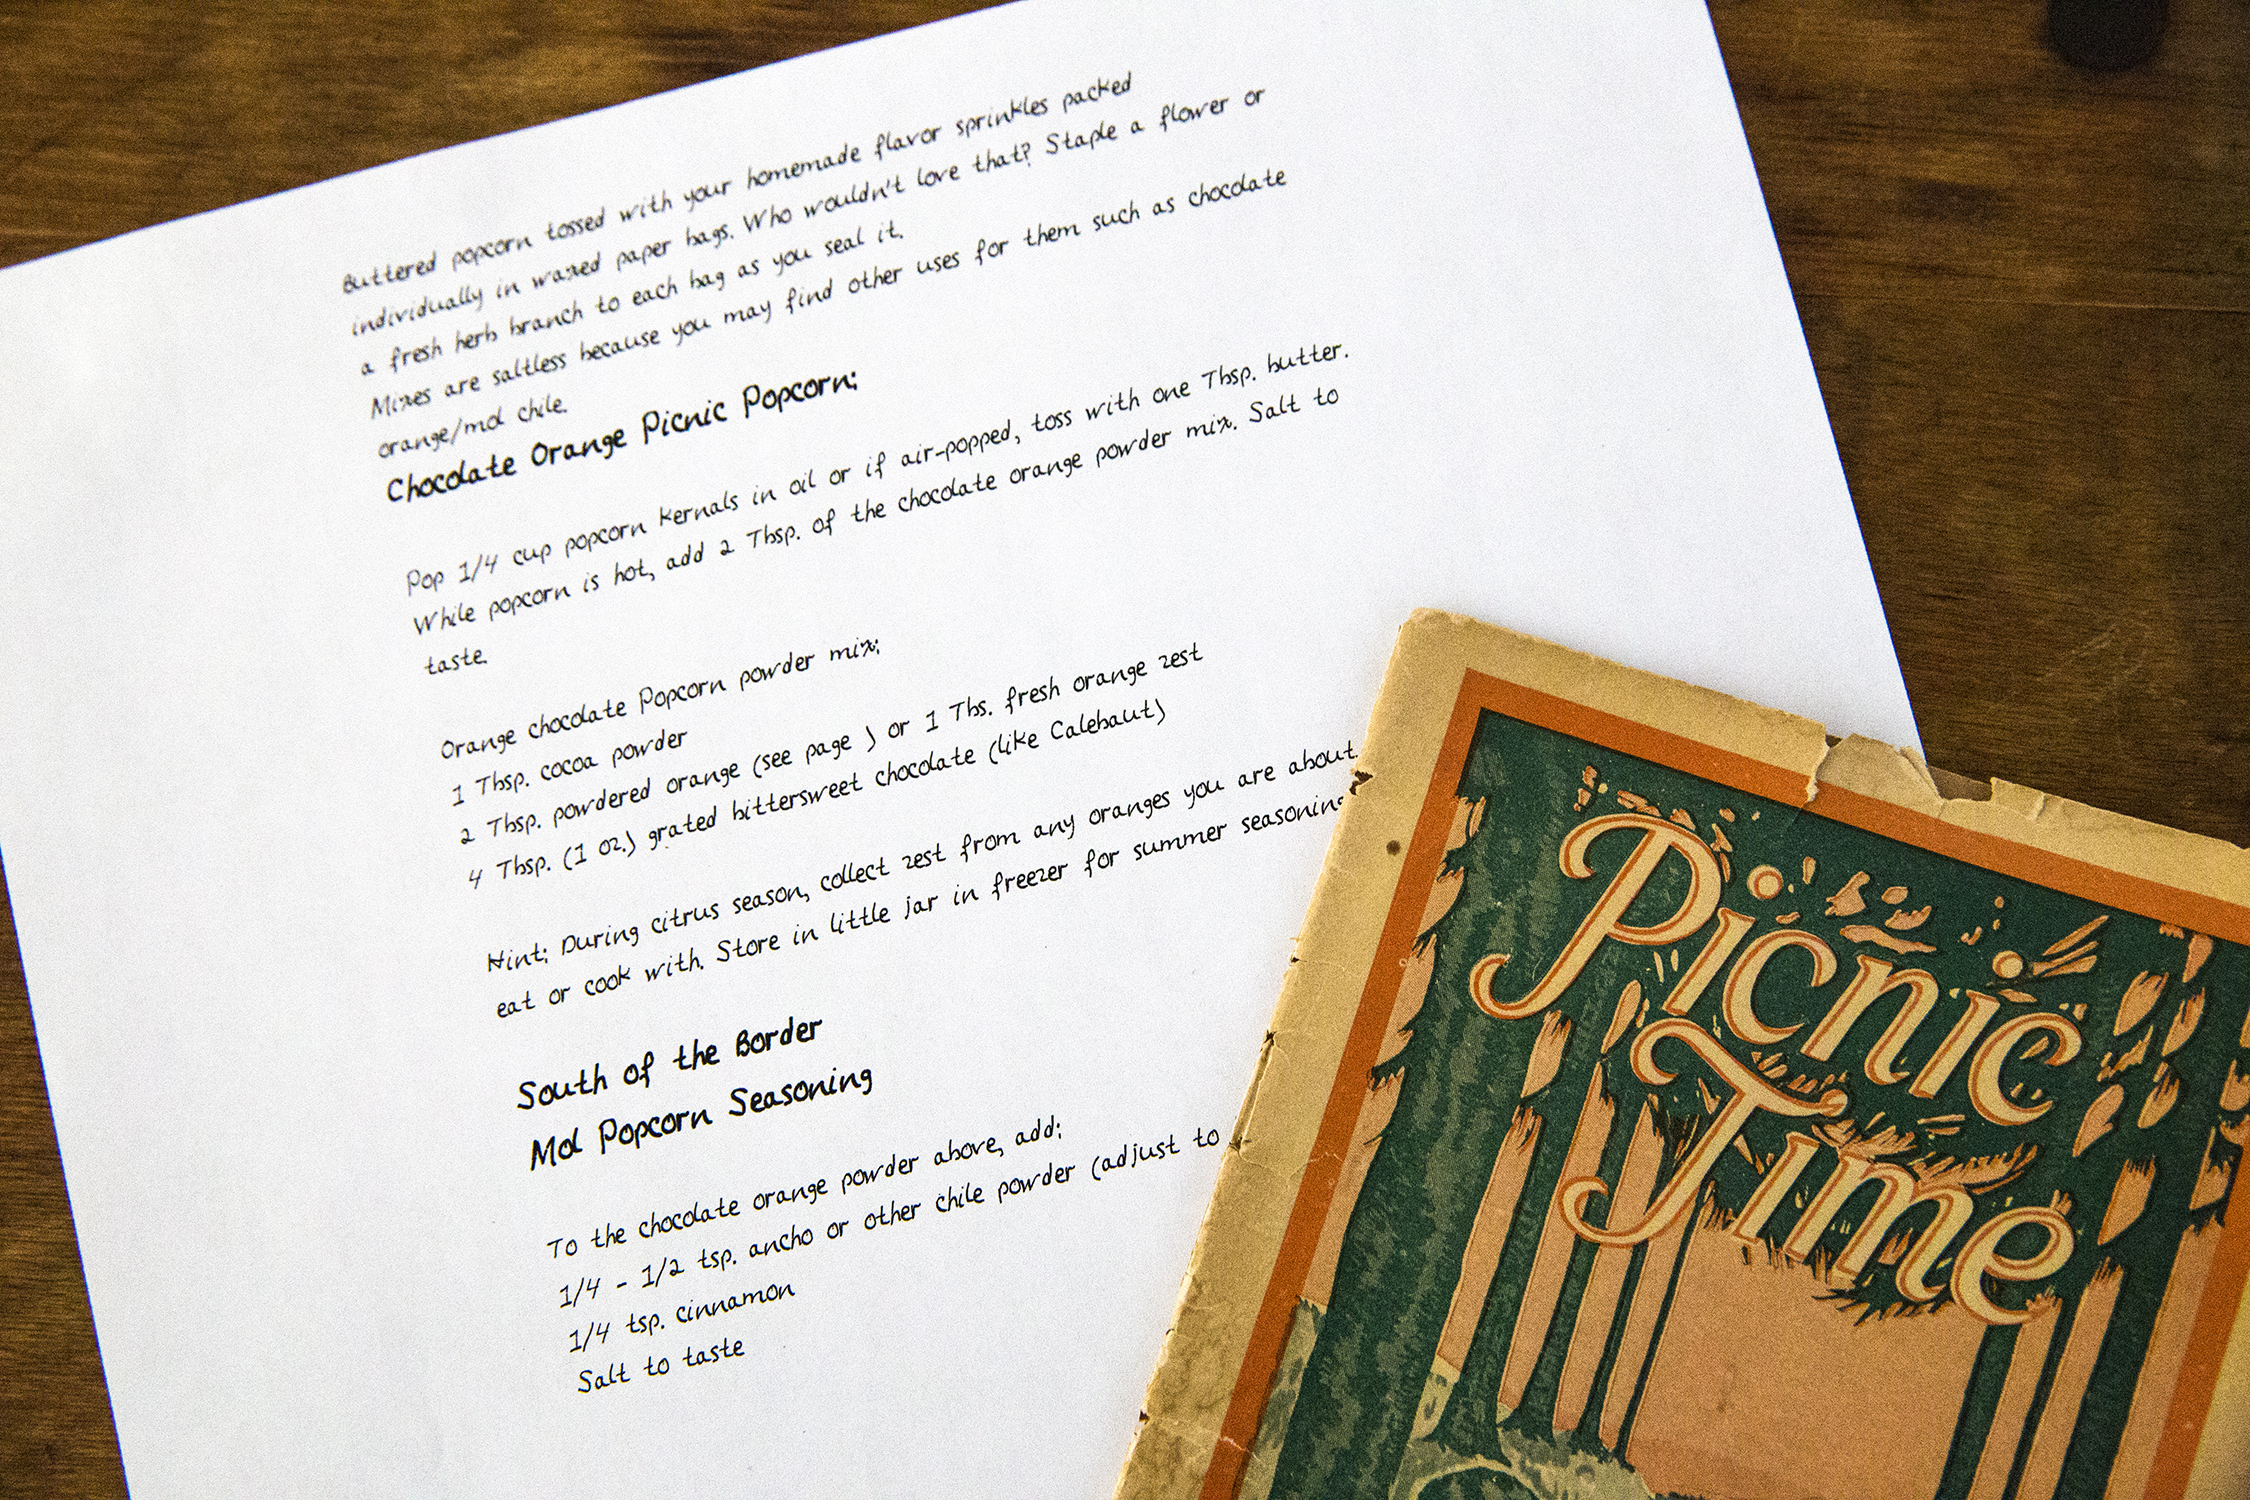 Buttered popcorn tossed with your homemade flavor sprinkles packed
individually in waxed paper bags. Who wouldn't love that? Staple a flower or
a fresh herb branch to each bag as you seal it.
Mixes are saltless because you may find other uses for them such as chocolate
orange/mol chile.
Chocolate Orange Picnic Popcorn:
Pop 1/4 cup popcorn kernals in oil or if air-popped, toss with one Tbsp. butter.
While popcorn is hot, add 2 Tbsp. of the chocolate orange powder mix. Salt to
taste.
Orange chocolate Popcorn powder mix:
1 Tbsp. cocoa powder
2 Tbsp. powdered orange (see page ) or 1 Tbs. fresh orange zest
4 Tbsp. (1 oz.) grated bittersweet chocolate (like Calebaut)
Hint: During citrus season, collect zest from any oranges you are about
eat or cook with. Store in little jar in freezer for summer seasoning
South of the Border
Mol Popcorn Seasoning
To the chocolate orange powder above, add:
1/4 - 1/2 tsp. ancho or other chile powder (adjust to
1/4 tsp. cinnamon
Salt to taste
Picnic
Time